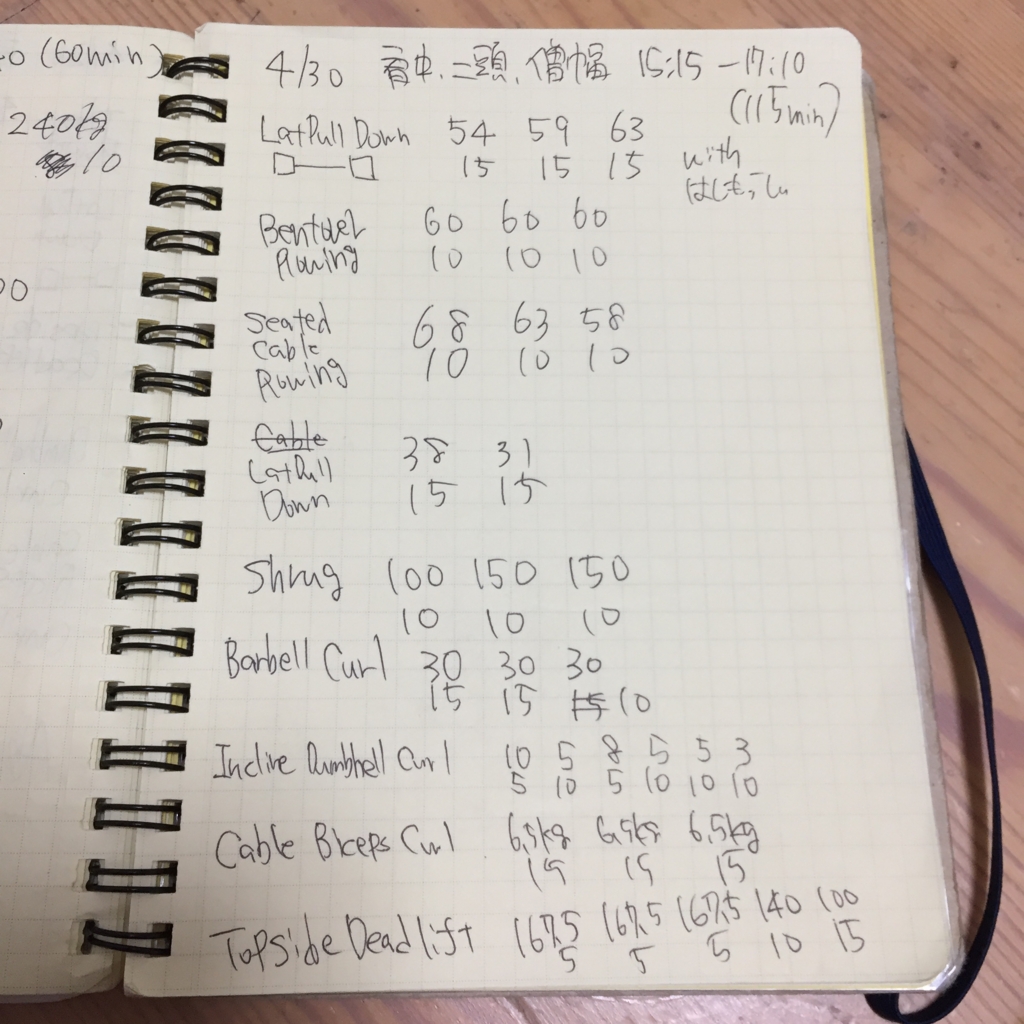 (60min)
240kg
10
4/30 背中、二頭、僧帽 15:15 - 17:10
(115min)
LatPull Down 54 59 63
15 15 15
with
はしもっしぃ
Bentover 60 60 60
Rowing 10 10 10
Seated 68 63 58
Cable 10 10 10
Rowing
Cable
LatPull 38 31
Down 15 15
Shrug 100 150 150
10 10 10
Barbell Curl 30 30 30
15 15 15 10
Incline Dumbbell Curl 10 5 8 5 5 3
5 10 5 10 10 10
Cable Biceps Curl 6.5kg 6.5kg 6.5kg
15 15 15
TopSide Deadlift 167.5 167.5 167.5 140 100
5 5 5 10 15